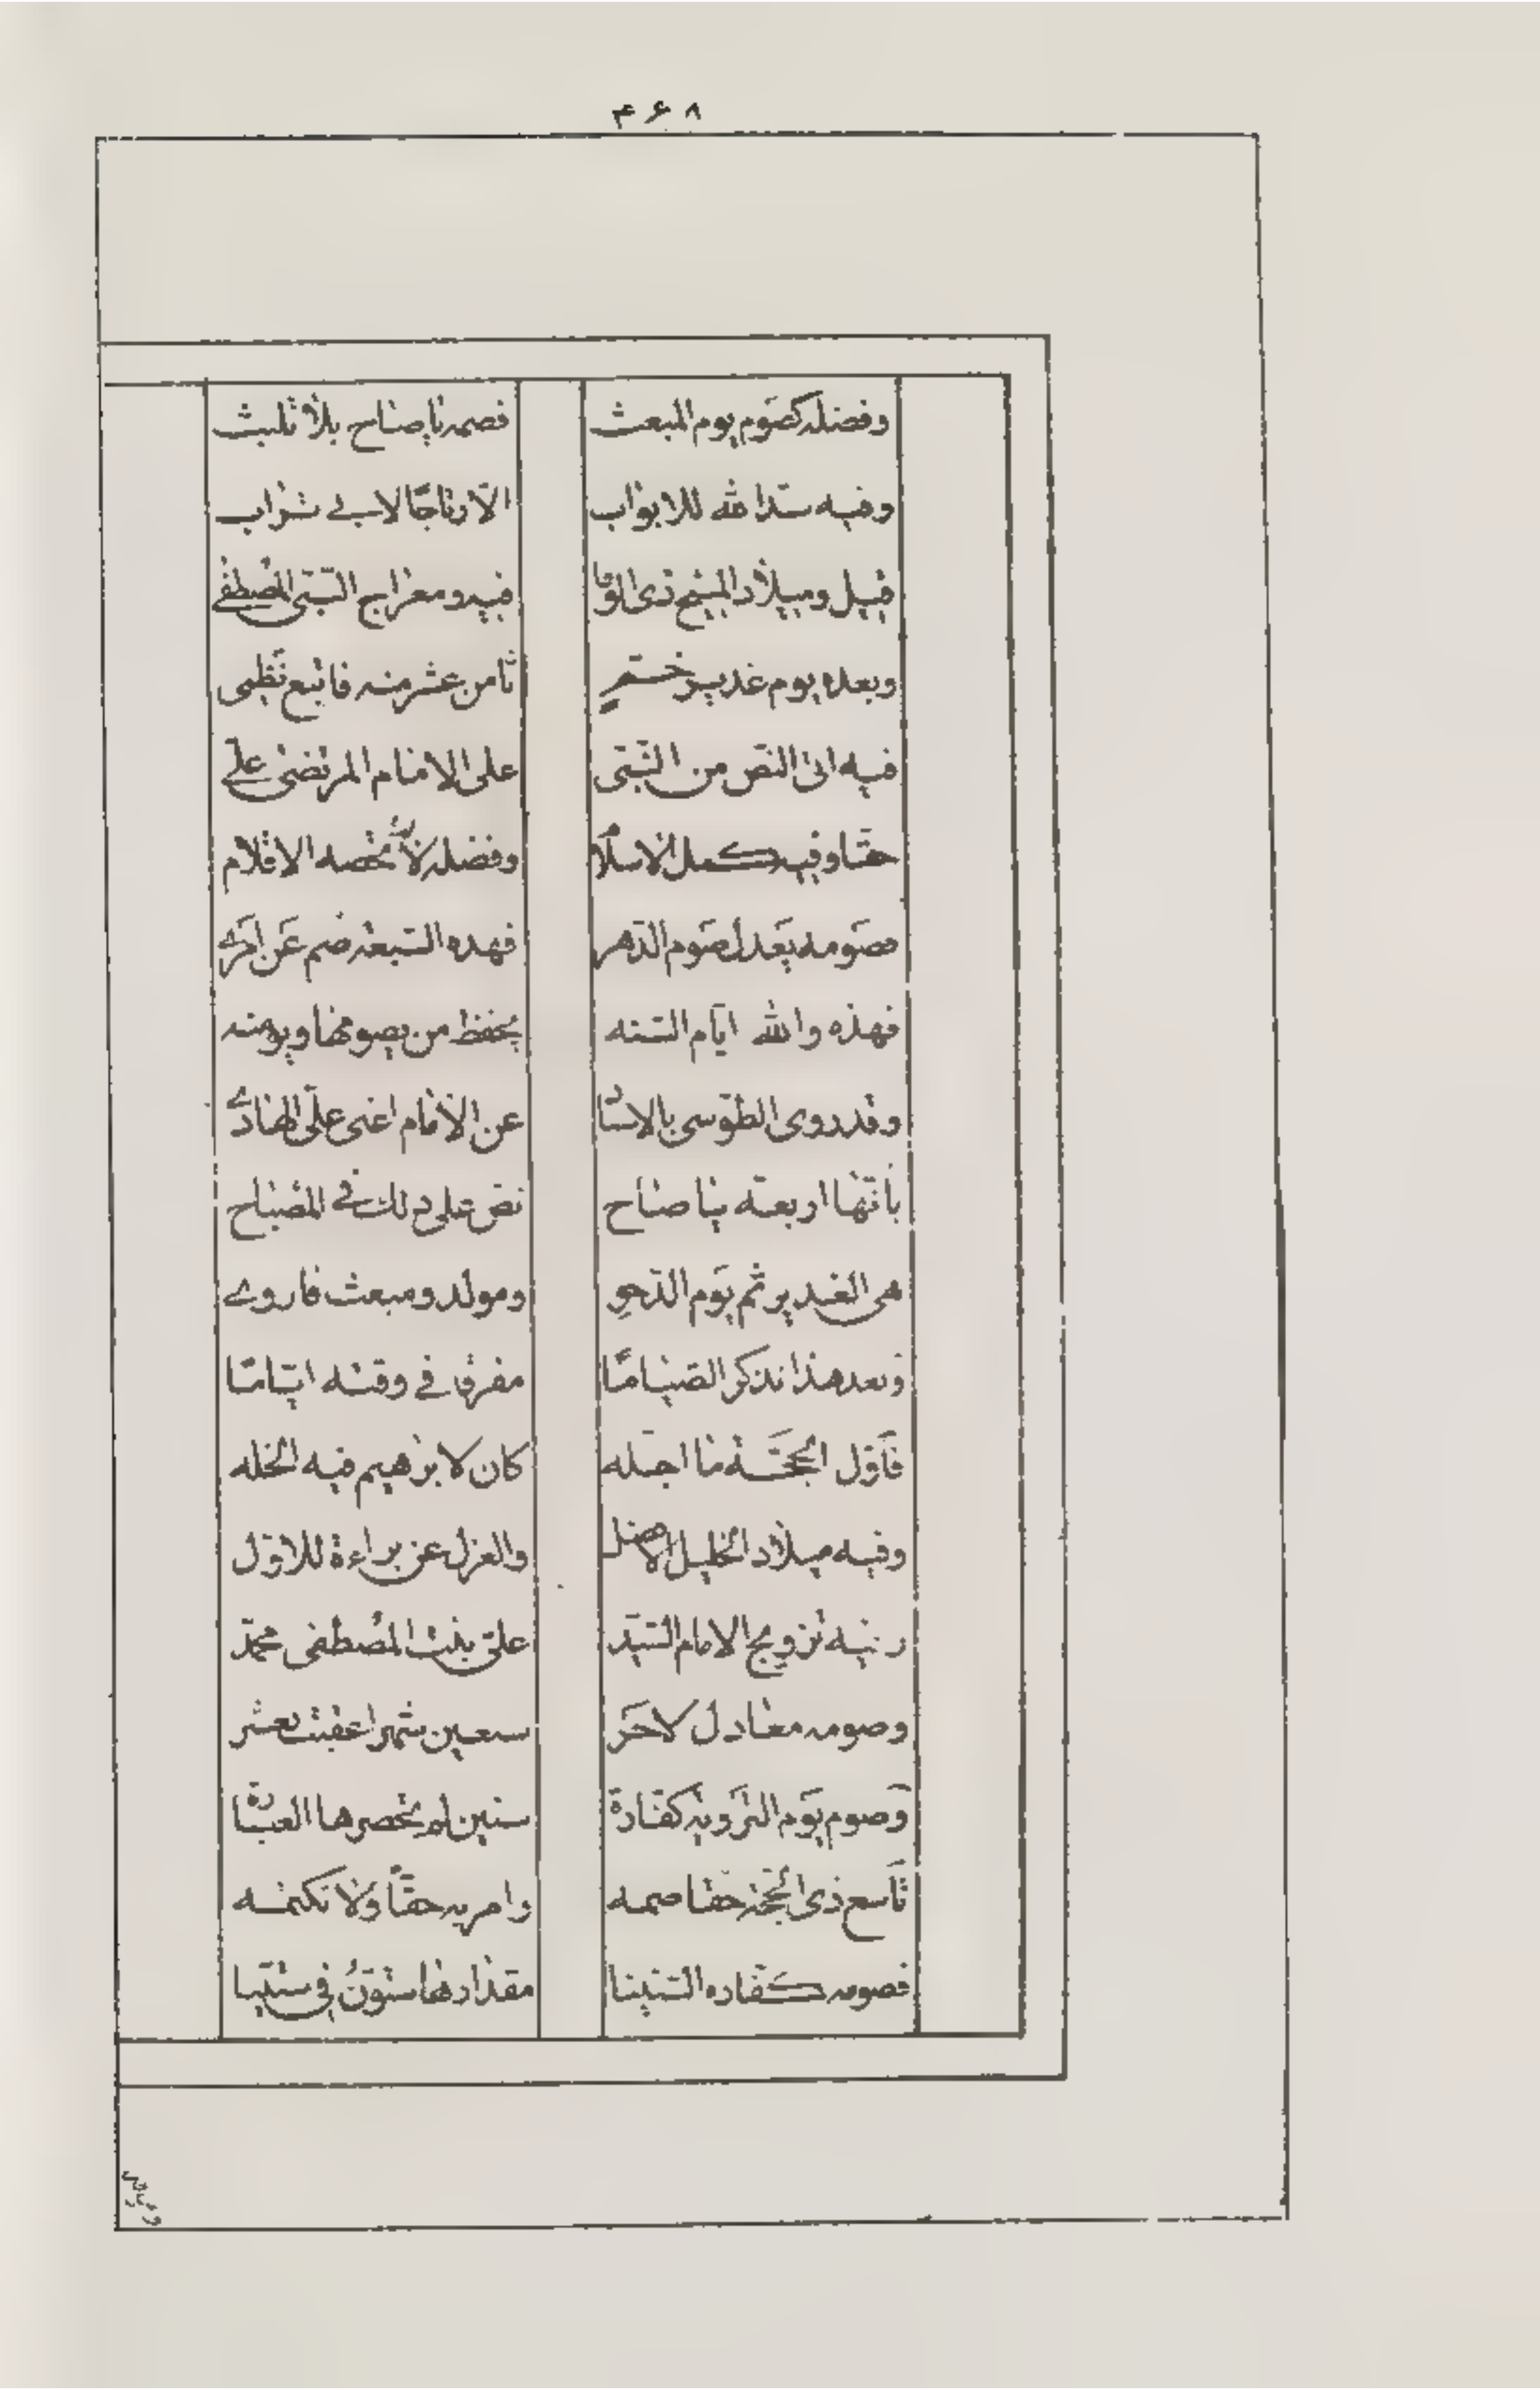 ۴۶۸
وفضله كصوم يوم المبعث فصمه يا صاح بلا تلبث
وفيه سد الله للابواب الا رتاجا لابي تراب
قيل وميلاد المسيح ذى الوفا فيه ومعراج النبى المصطفى
وبعده يوم غدير خم ثامن عشر منه فاتبع نظمى
فيه اتى النص من النبى على الامام المرتضى على
حقا وفيه كمل الاسلام وفضله لا تحصه الاقلام
فصومه يعدل صوم الدهر فهذه السبعة صم عن امرى
فهذه والله ايام السنه يحفظ من يصومها ويومنه
وقد روى الطوسى بالاسناد عن الامام اعنى على الهادي
بانها اربعة يا صاح نص على ذلك في المصباح
هى الغدير ثم يوم الدحو ومولد ومبعث فاروے
وبعد هذا نذكر الصياما مفرق في وقته اياما
فاول الحجة ما اجله كان لابرهيم فيه الخله
وفيه ميلاد الخليل الافضل والعزل عن براءة للاول
وفيه تزويج الامام السيد على بنت المصطفى محمد
وصومه معادل لاحر سبعين شهرا عقبت بعشر
وصوم يوم التروية كفارة سنين لم يحصرها العبارة
تاسع ذى الحجة حقا صمه وامر به حقا ولا تكتمه
فصومه كفاره السنينا مقدارها ستون في ستينا